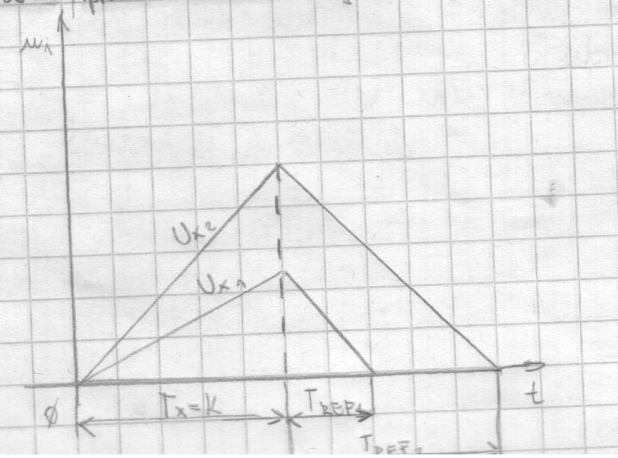 u₁
Ux2
Ux1
Ø
Tx=K
TREF1
t
TREF2